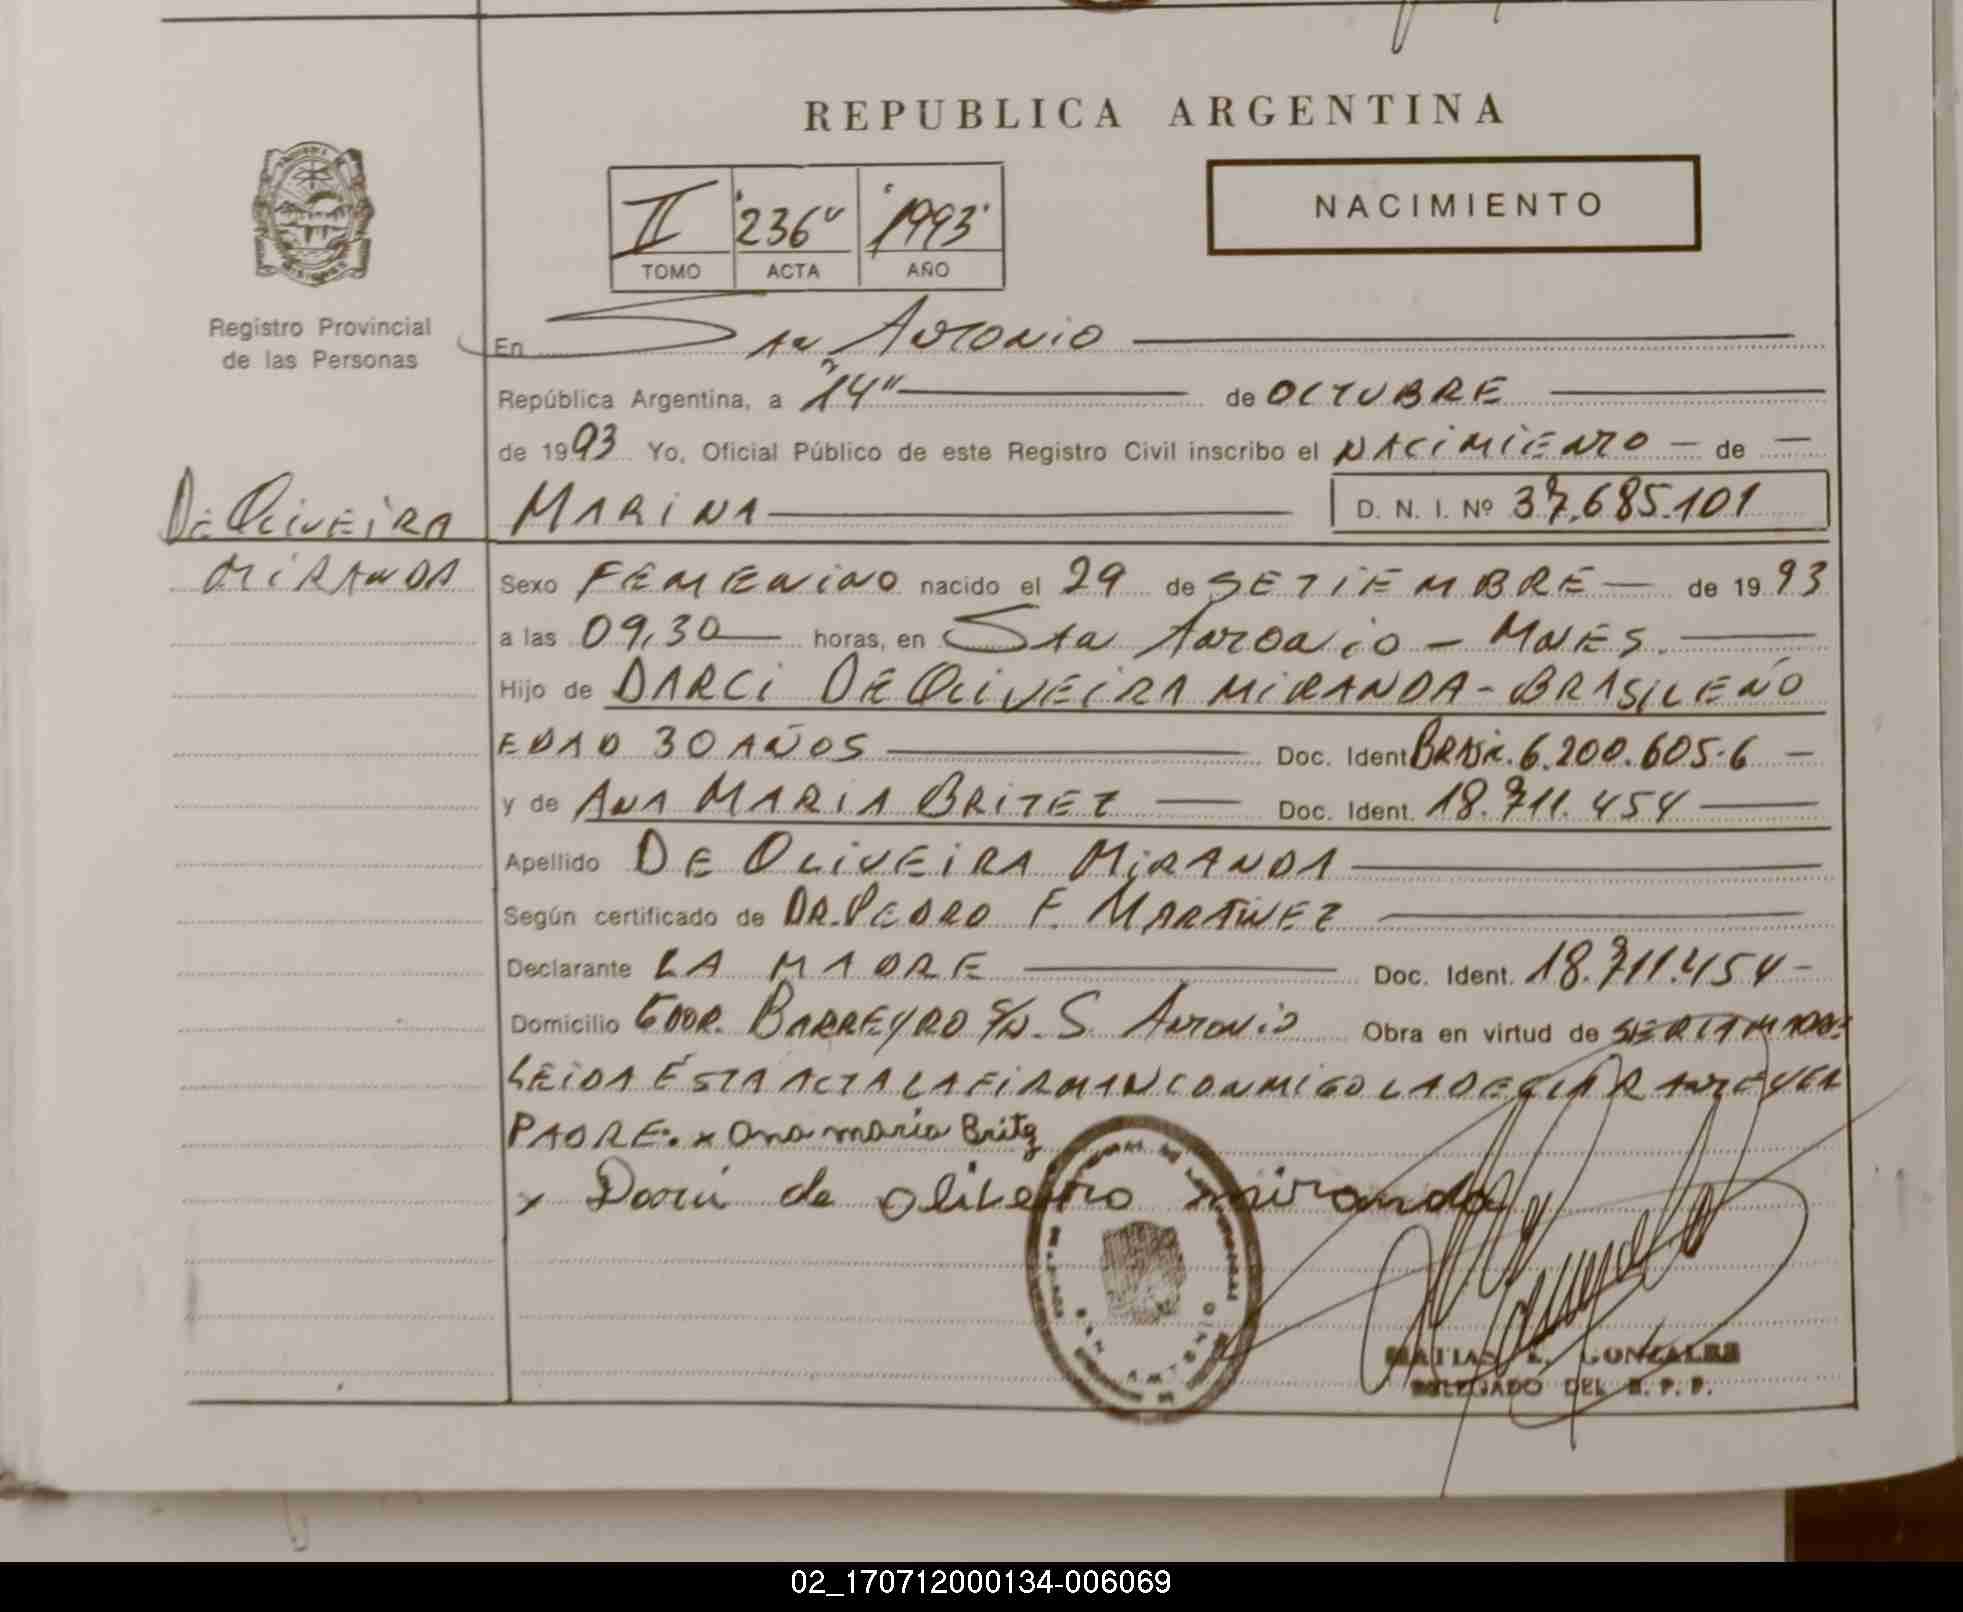 REPUBLICA ARGENTINA
NACIMIENTO
II "236" "1993"
TOMO ACTA AÑO
Registro Provincial
de las Personas
En San Antonio
República Argentina, a "14" de OCTUBRE
de 1993 Yo, Oficial Público de este Registro Civil inscribo el NACIMIENTO - de -
DE OLIVEIRA
MIRANDA
MARINA D. N. I. Nº 37.685.101
Sexo FEMENINO nacido el 29 de SETIEMBRE de 1993
a las 09,30 horas, en San Antonio - MNES.
Hijo de DARCI DE OLIVEIRA MIRANDA - BRASILEÑO
EDAD 30 AÑOS Doc. Ident BRASI. 6.200.605-6 -
y de ANA MARIA BRITEZ Doc. Ident. 18.711.454
Apellido DE OLIVEIRA MIRANDA
Según certificado de DR. PEDRO F. MARTINEZ
Declarante LA MADRE Doc. Ident. 18.711.454 -
Domicilio GDOR. BARREYRO S/N. S. Antonio Obra en virtud de
LEIDA ÉSTA ACTA LA FIRMAN CONMIGO LA DECLARANTE Y EL
PADRE. x Ana maria Britez
x Darci de oliveira miranda
MATIAS GONZALES
DELEGADO DEL R. P. P.
02_170712000134-006069